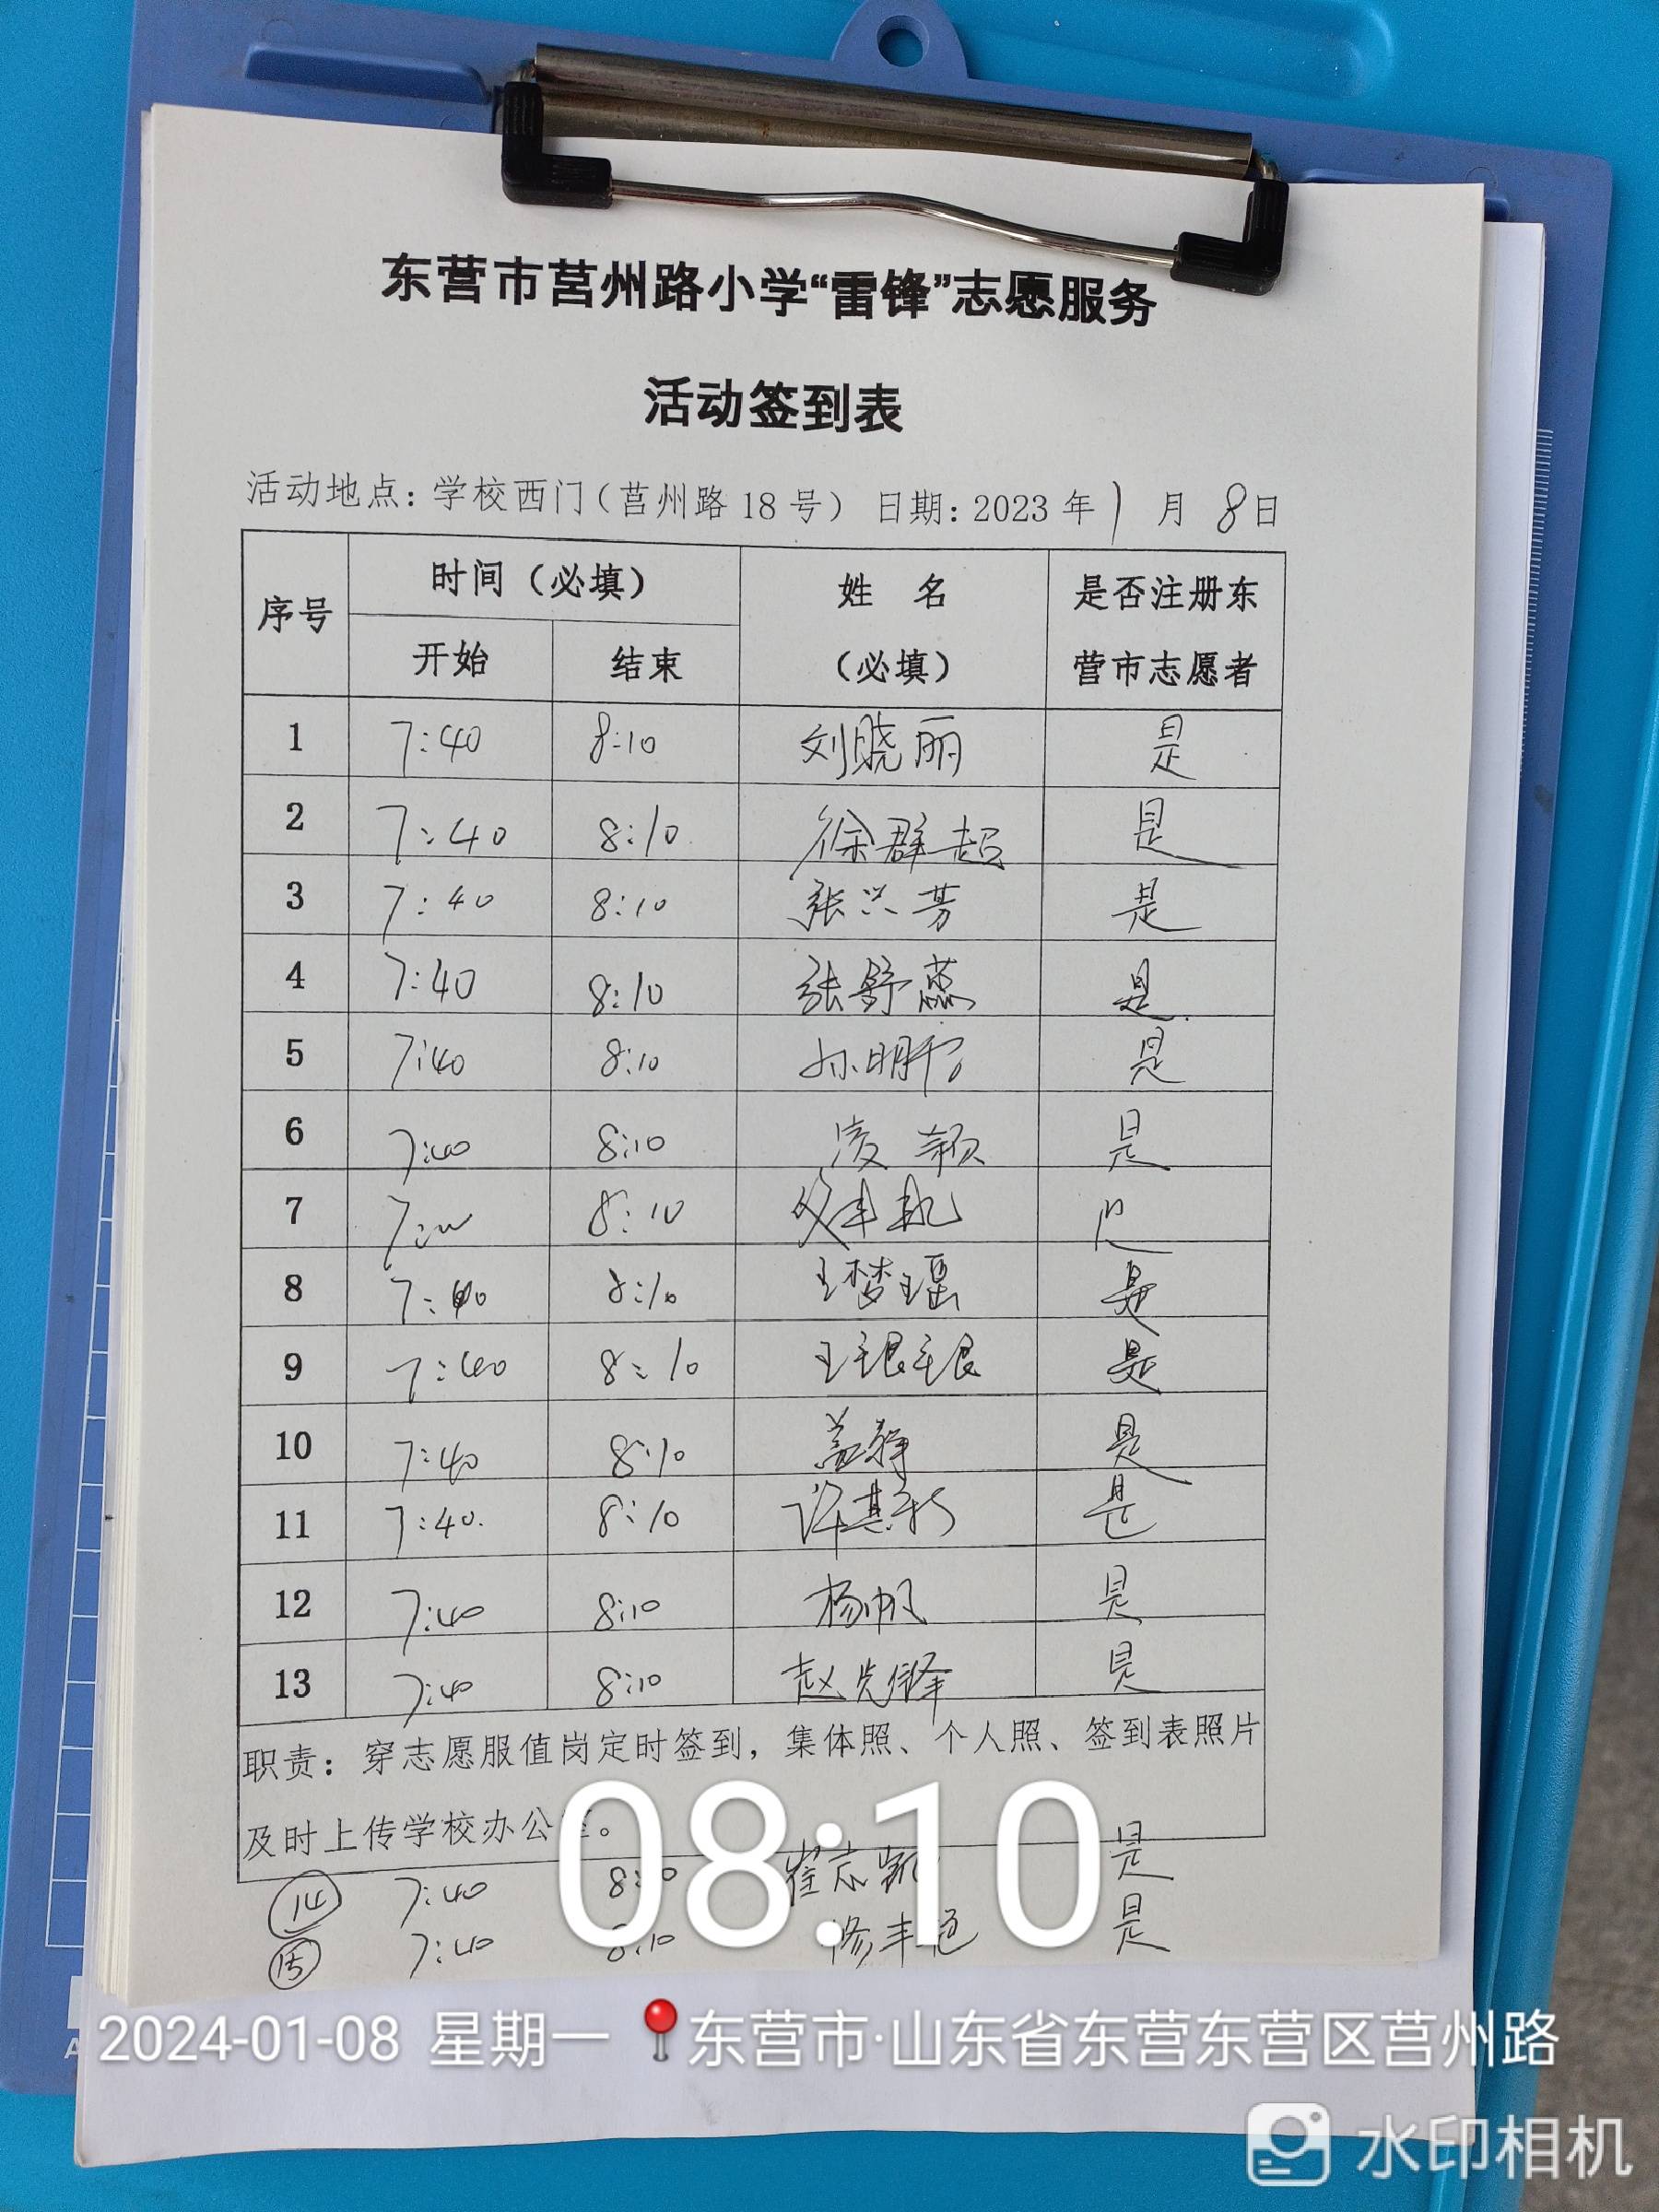 东营市莒州路小学“雷锋”志愿服务
活动签到表
活动地点：学校西门（莒州路 18 号） 日期：2023 年 1 月 8 日
序号 时间（必填） 姓 名 是否注册东
开始 结束 （必填） 营市志愿者
1 7:40 8:10 刘晓丽 是
2 7:40 8:10 徐群超 是
3 7:40 8:10 张兴芳 是
4 7:40 8:10 张舒蕊 是
5 7:40 8:10 孙明 是
6 7:40 8:10 凌颖 是
7 8:10
8 7:40 8:10 王梦瑶 是
9 7:40 8:10 王银银 是
10 7:40 8:10 盖静 是
11 7:40 8:10 许其 是
12 7:40 8:10 杨帆 是
13 7:40 8:10 赵先锋 是
职责：穿志愿服值岗定时签到，集体照、个人照、签到表照片
及时上传学校办公。
14 7:40 8:10 崔志凯 是
15 7:40 8:10 修丰艳 是
08:10
2024-01-08 星期一 东营市·山东省东营东营区莒州路
水印相机